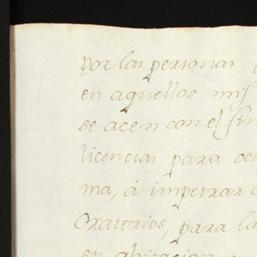 por las personas
en aquellos mis
se acen con el fin
licencias para oc
ma, a impetrar
Oratorios, para la
en abitacion